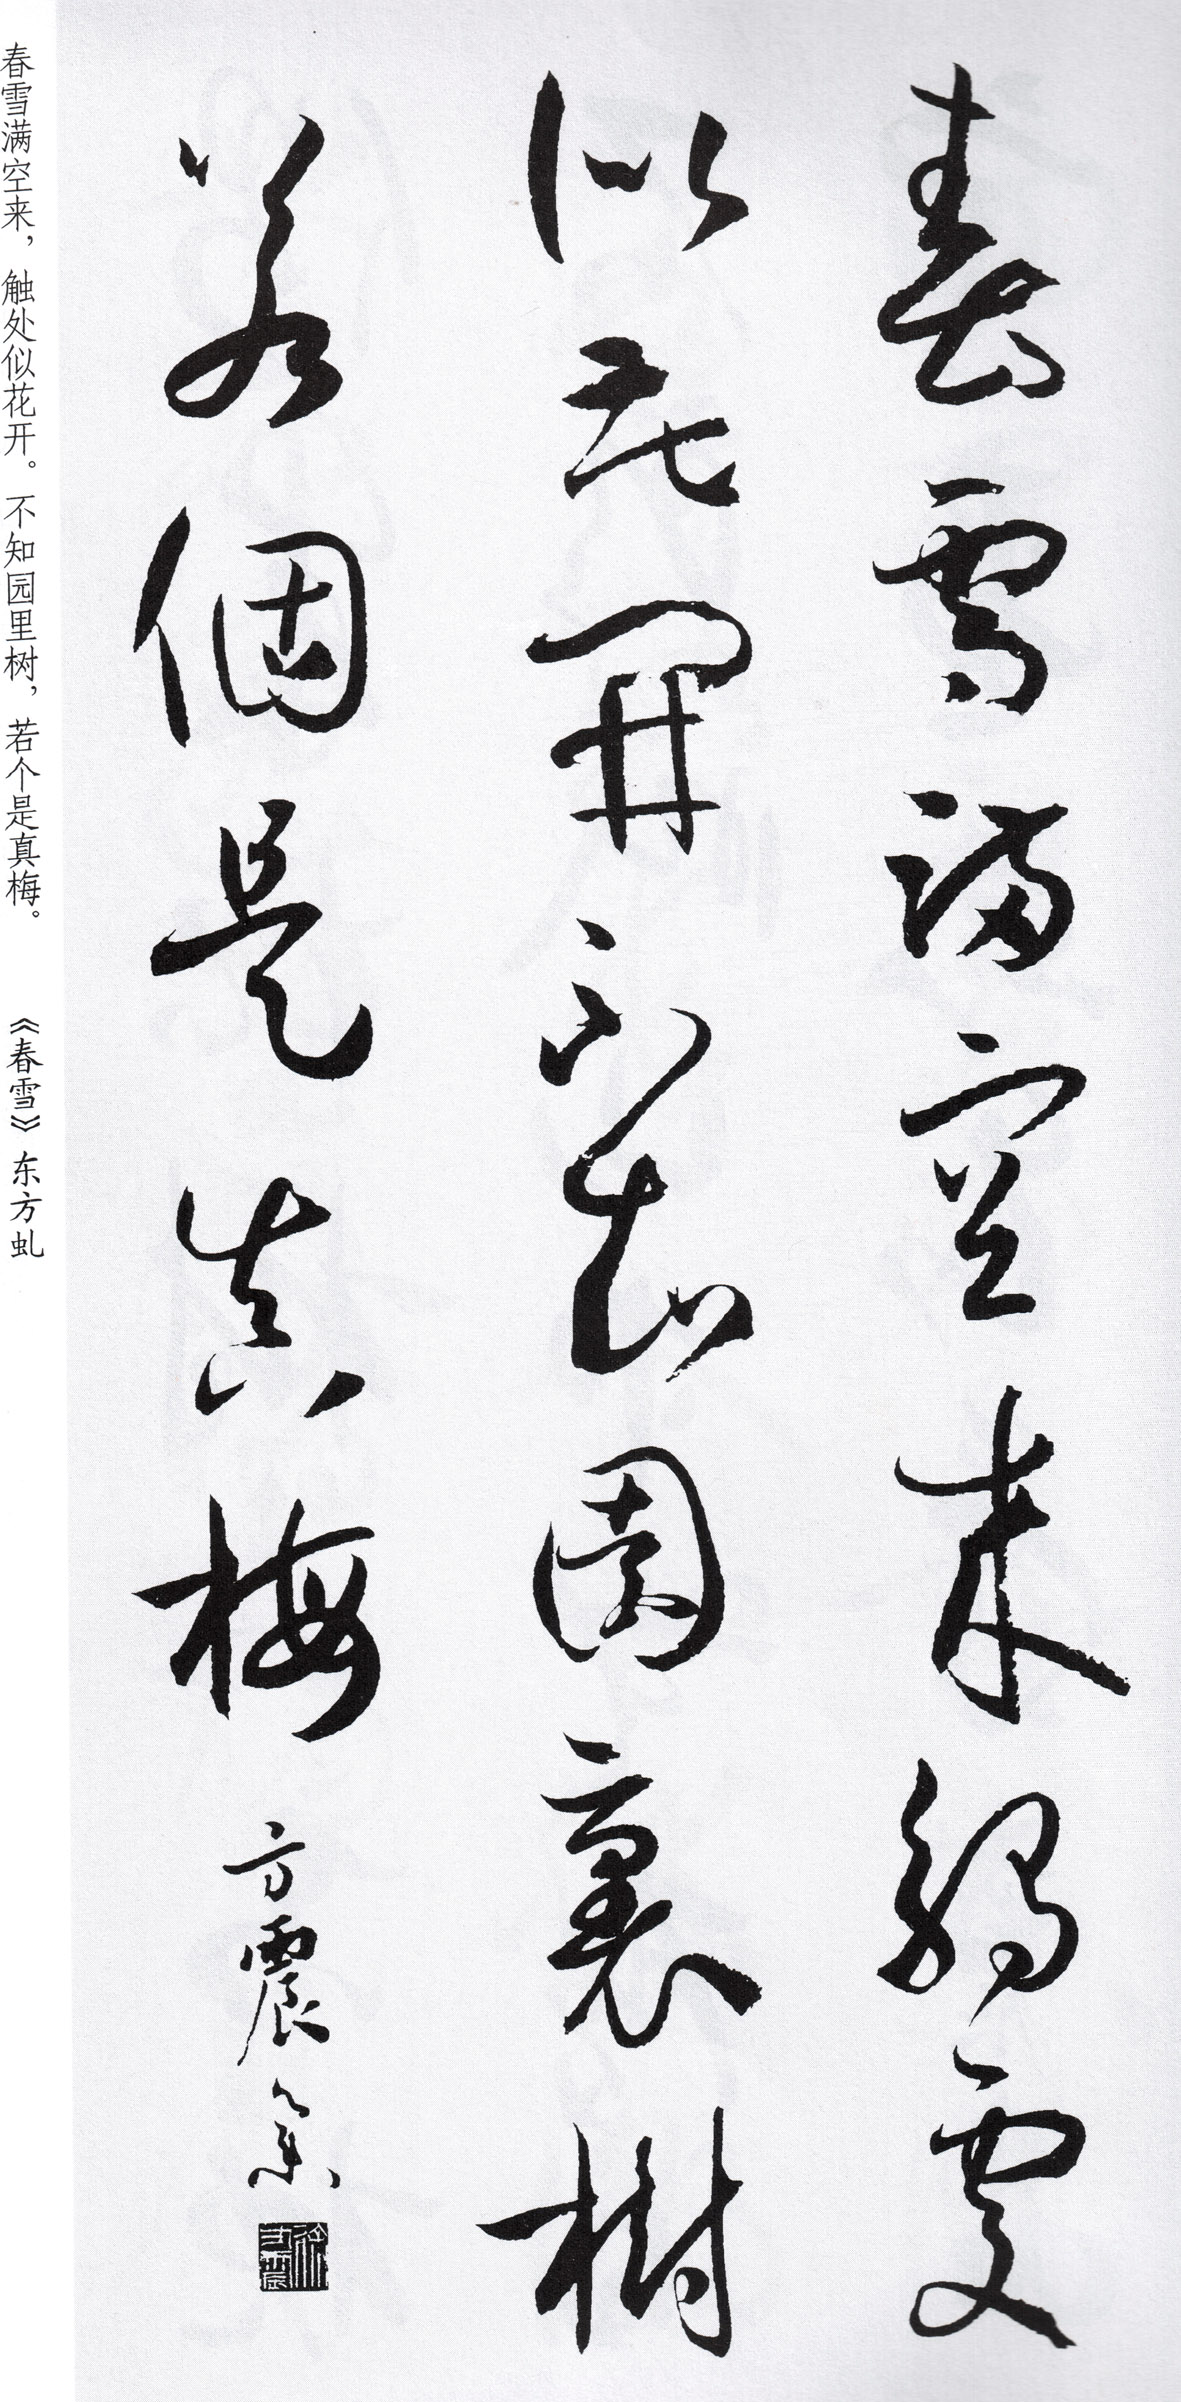 春雪満空来觸處
似花開不知園裏樹
若個是真梅
方震篆
春雪满空来，触处似花开。不知园里树，若个是真梅。 《春雪》东方虬